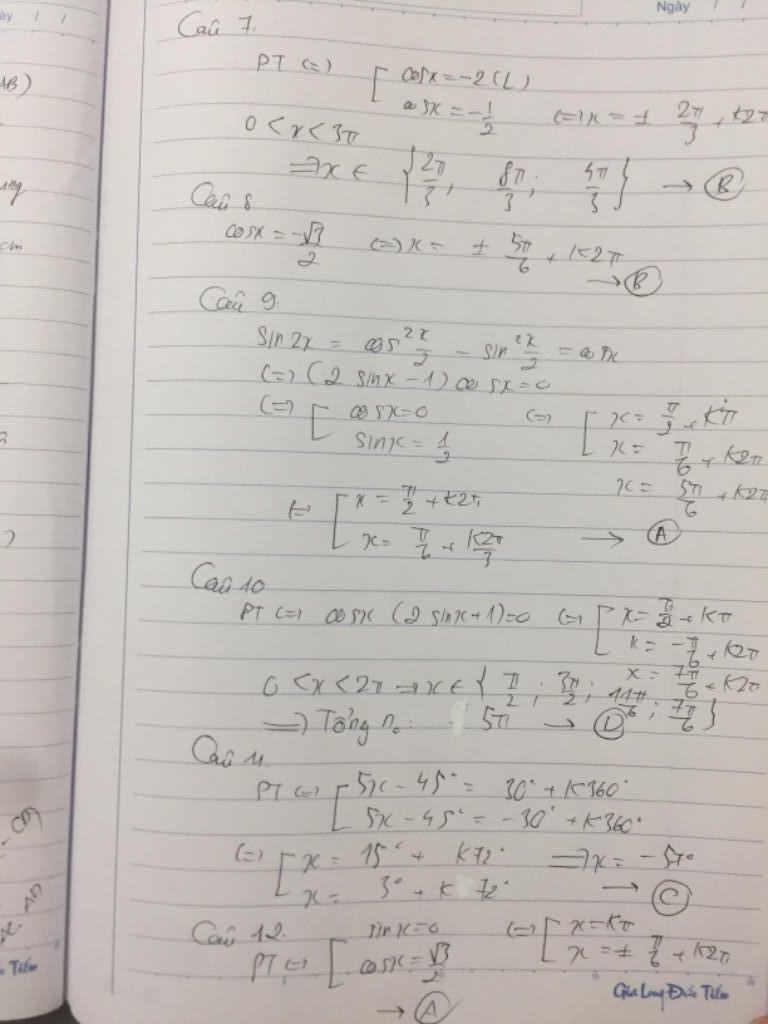 Ngày
Câu 7.
PT (=) [ cosx = -2 (L)
cosx = -1/2 (=) x = ± 2π/3 + k2π
0 < x < 3π
=> x ∈ { 2π/3 ; 8π/3 ; 4π/3 } → (B)
Câu 8
cosx = -√3/2 (=) x = ± 5π/6 + k2π
→ (B)
Câu 9.
sin2x = cos²x/2 - sin²x/2 = cosx
(=) (2 sinx - 1) cosx = 0
(=) [ cosx = 0 (=) [ x = π/2 + kπ
sinx = 1/2 x = π/6 + k2π
x = 5π/6 + k2π
(=) [ x = π/2 + k2π
x = π/6 + k2π/3 → (A)
Câu 10
PT (=) cosx (2 sinx + 1) = 0 (=) [ x = π/2 + kπ
x = -π/6 + k2π
x = 7π/6 + k2π
0 < x < 2π => x ∈ { π/2 ; 3π/2 ; 11π/6 ; 7π/6 }
=> Tổng no: 5π → (D)
Câu 11
PT (=) [ 5x - 45° = 30° + k360°
5x - 45° = -30° + k360°
(=) [ x = 15° + k72° => x = -57°
x = 3° + k72° → (C)
Câu 12.
PT (=) [ sinx = 0 (=) [ x = kπ
cosx = √3/2 x = ± π/6 + k2π
→ (A)
Gia Long Đức Tiến